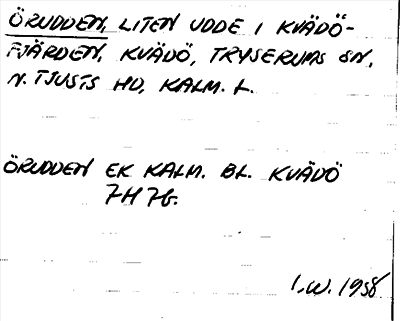 ÖRUDDEN, LITEN UDDE I KVÄDÖ-
FJÄRDEN, KVÄDÖ, TRYSERUMS SN,
N. TJUSTS HD, KALM. L.
ÖRUDDEN EK KALM. BL. KVÄDÖ
7H 7G.
I.W. 1958